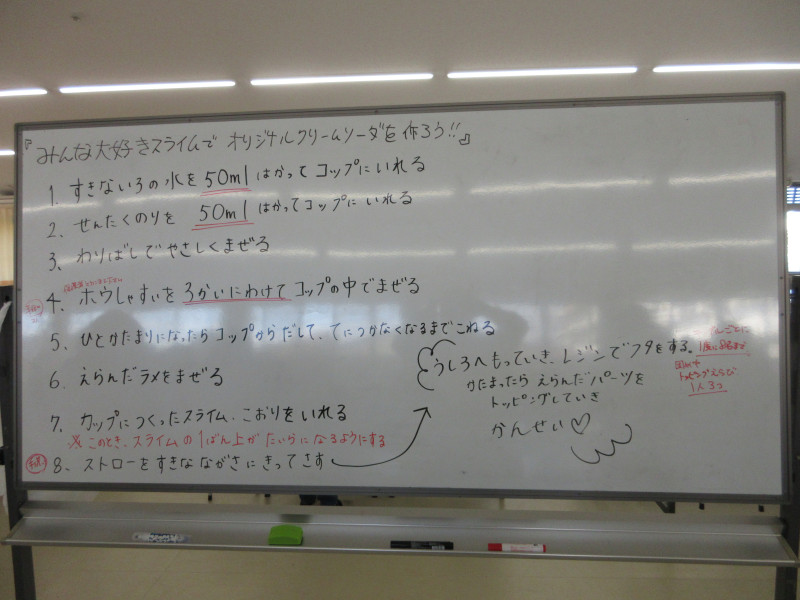 『みんな大好きスライムで オリジナルクリームソーダを作ろう!!』
1. すきないろの水を 50ml はかって コップにいれる
2. せんたくのりを 50ml はかってコップに いれる
3、わりばしでやさしくまぜる
4. ホウしゃすいを 3かいにわけて コップの中でまぜる
5. ひとかたまりになったら コップからだして、てにつかなくなるまでこねる
6. えらんだラメをまぜる
7. カップにつくったスライム、こおりをいれる
※このとき、スライムの1ばん上が たいらになるようにする
8、ストローをすきな ながさにきってさす
うしろへもっていき、レジンでフタをする。
かたまったら えらんだパーツを
トッピングしていき
かんせい♡
1人3つ